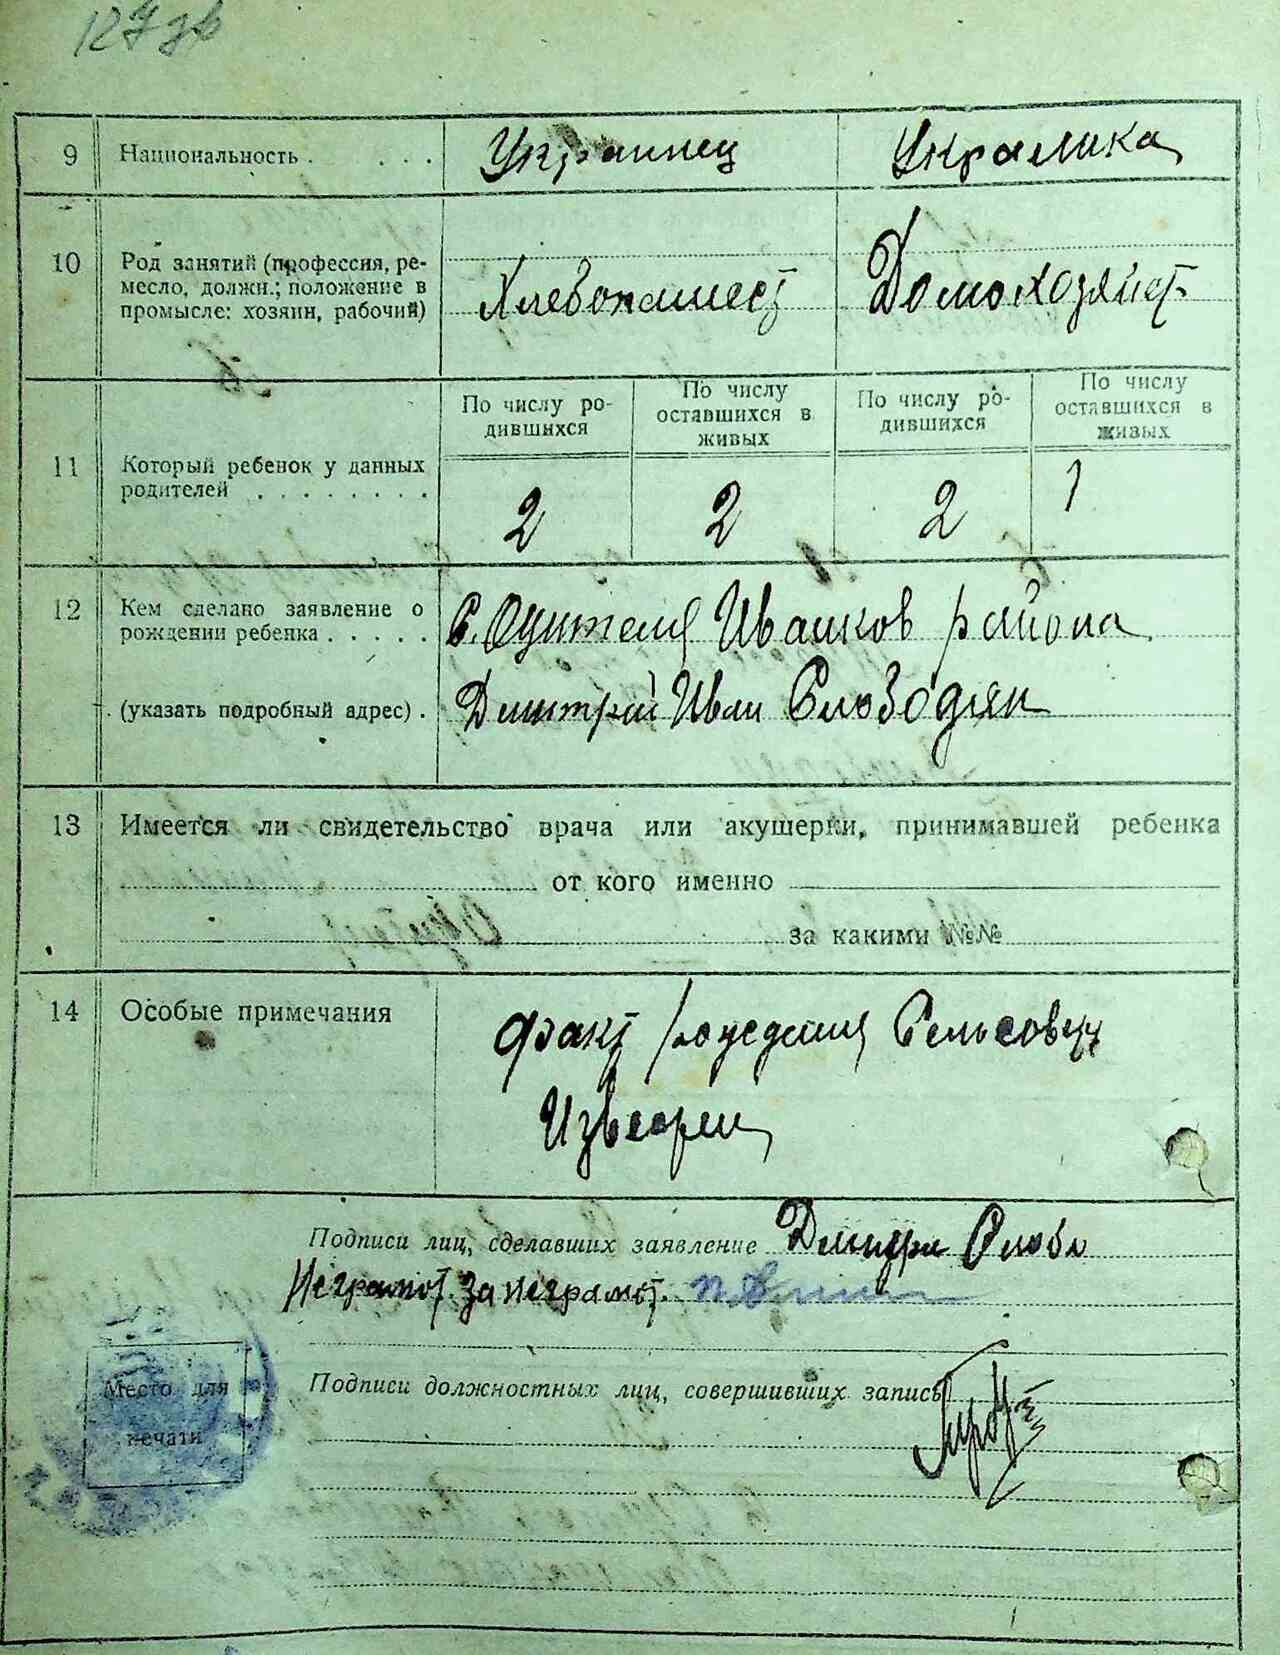 127 зв
9 Национальность . . . . Украинец Украинка
10 Род занятий (профессия, ре-
месло, должн.; положение в
промысле: хозяин, рабочий) Хлебопашест Домохозяйст
По числу ро-
дившихся
По числу
оставшихся в
живых
По числу ро-
дившихся
По числу
оставшихся в
живых
11 Который ребенок у данных
родителей . . . . . . . . 2 2 2 1
12 Кем сделано заявление о
рождении ребенка . . . . . С. Иванков района
(указать подробный адрес) . Дмитрий Иван Слободян
13 Имеется ли свидетельство врача или акушерки, принимавшей ребенка
от кого именно
за какими №№
14 Особые примечания
Факт рождения Сельсовету
Известен
Подписи лиц, сделавших заявление Дмитри Слобо
Неграмот. за неграмот.
Место для
печати
Подписи должностных лиц, совершивших запись